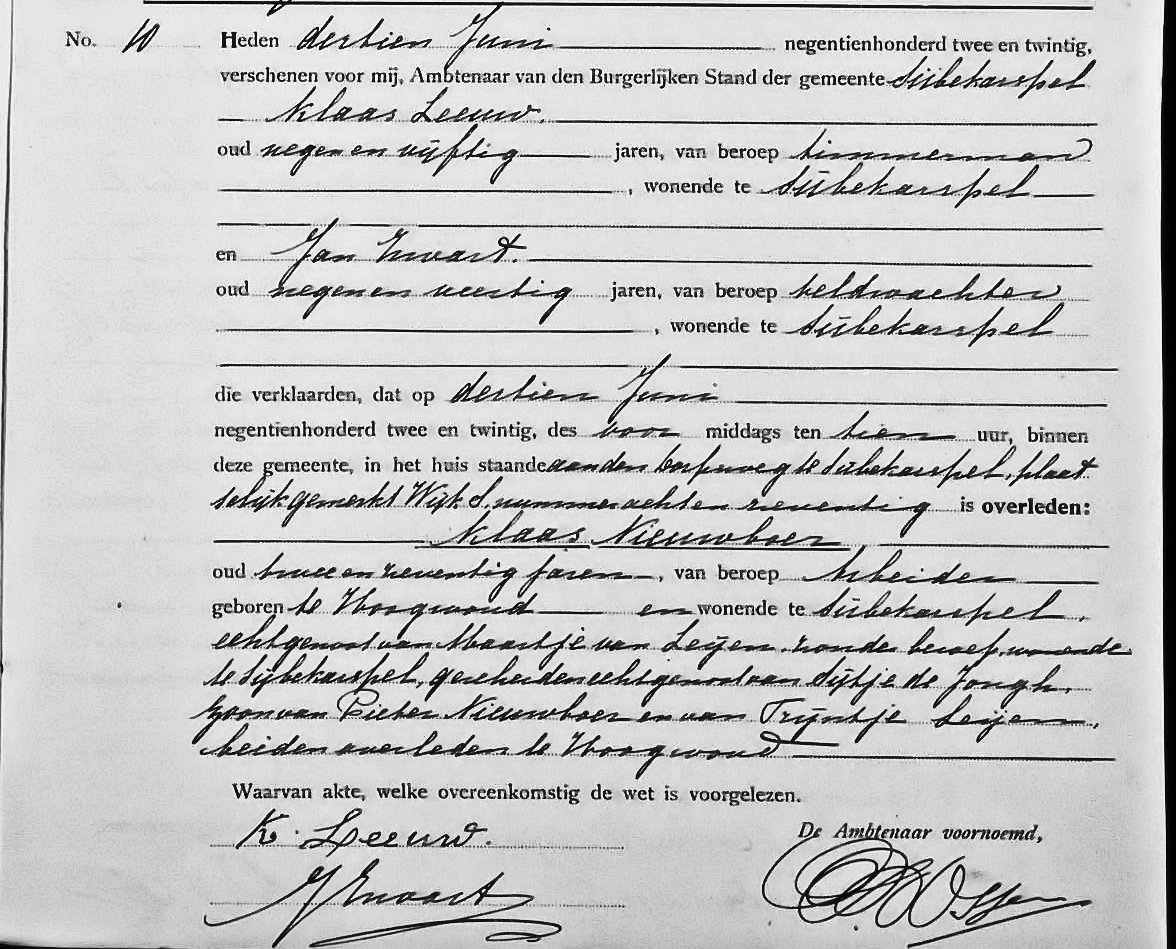 No. 10 Heden dertien Juni negentienhonderd twee en twintig,
verschenen voor mij, Ambtenaar van den Burgerlijken Stand der gemeente Sijbekarspel
Klaas Leeuw.
oud negen en vijftig jaren, van beroep timmerman
, wonende te Sijbekarspel
en Jan Zwart.
oud negen en veertig jaren, van beroep veldwachter
, wonende te Sijbekarspel
die verklaarden, dat op dertien Juni
negentienhonderd twee en twintig, des voor middags ten tien uur, binnen
deze gemeente, in het huis staande aan den Dorpsweg te Sijbekarspel, plaat
selijk gemerkt Wijk S, nummer acht en zeventig is overleden:
Klaas Nieuwboer,
oud twee en zeventig jaren, van beroep Arbeider
geboren te Hoogwoud en wonende te Sijbekarspel,
echtgenoot van Maartje van Leijen, zonder beroep, wonende
te Sijbekarspel, gescheiden echtgenoot van Sijtje de Jongh,
zoon van Pieter Nieuwboer en van Trijntje Leijen,
beiden overleden te Hoogwoud
Waarvan akte, welke overeenkomstig de wet is voorgelezen.
K. Leeuw.
De Ambtenaar voornoemd,
J Zwart